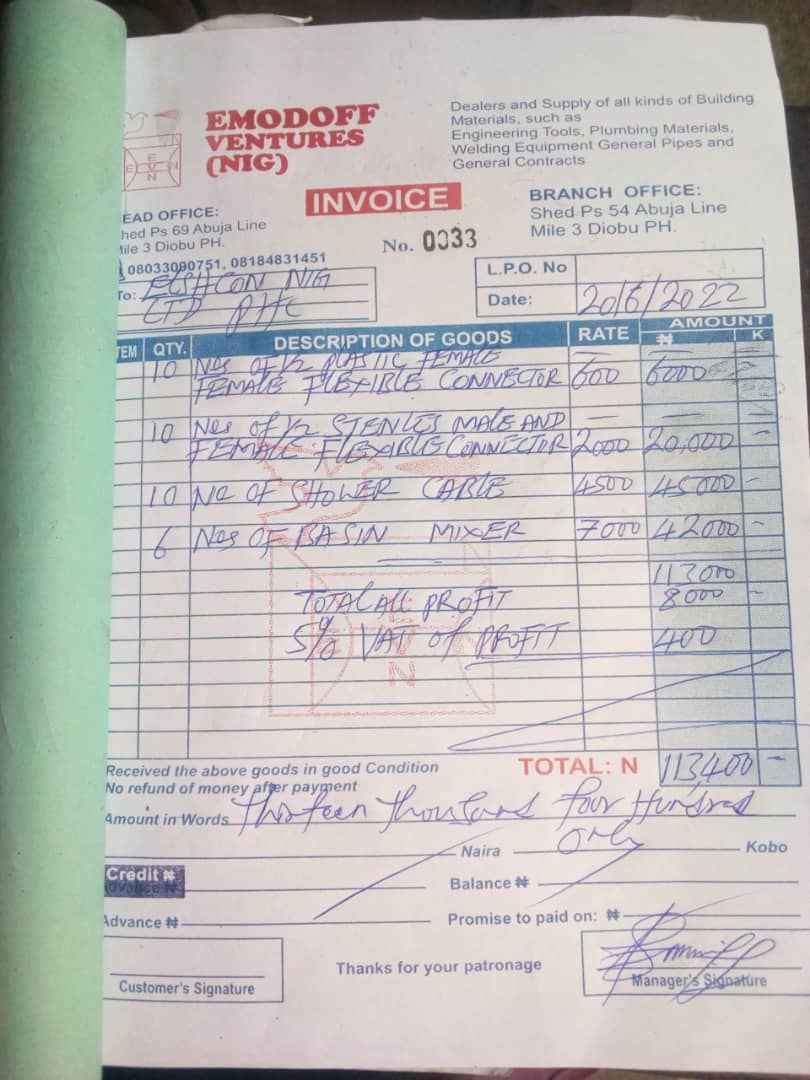 EMODOFF
VENTURES
(NIG)
Dealers and Supply of all kinds of Building
Materials, such as
Engineering Tools, Plumbing Materials,
Welding Equipment General Pipes and
General Contracts
E
E V N
N
INVOICE
EAD OFFICE:
hed Ps 69 Abuja Line
ile 3 Diobu PH.
08033090751, 08184831451
BRANCH OFFICE:
Shed Ps 54 Abuja Line
Mile 3 Diobu PH.
No. 0033
To: ELSHCON NIG
LTD PHC
L.P.O. No
Date: 20/6/2022
TEM QTY. DESCRIPTION OF GOODS RATE AMOUNT
₦ K
10 Nos of 1/2 PLASTIC FEMALE
FEMALE FLEXIBLE CONNECTOR 600 6000
10 Nos of 1/2 STENLES MALE AND
FEMALE FLEXIBLE CONNECTOR 2000 20,000 -
10 No OF SHOWER CABLE 4500 45000 -
6 Nos OF BASIN MIXER 7000 42000 -
113000
TOTAL ALL PROFIT 8000 -
5% VAT of PROFIT 400
E V N
N
Received the above goods in good Condition
No refund of money after payment
TOTAL: N 113,400 -
Amount in Words Thirteen Thousand four Hundred
Only
Naira Kobo
Credit ₦
Advance ₦
Balance ₦
Advance ₦
Promise to paid on: ₦
Customer's Signature
Thanks for your patronage
Manager's Signature